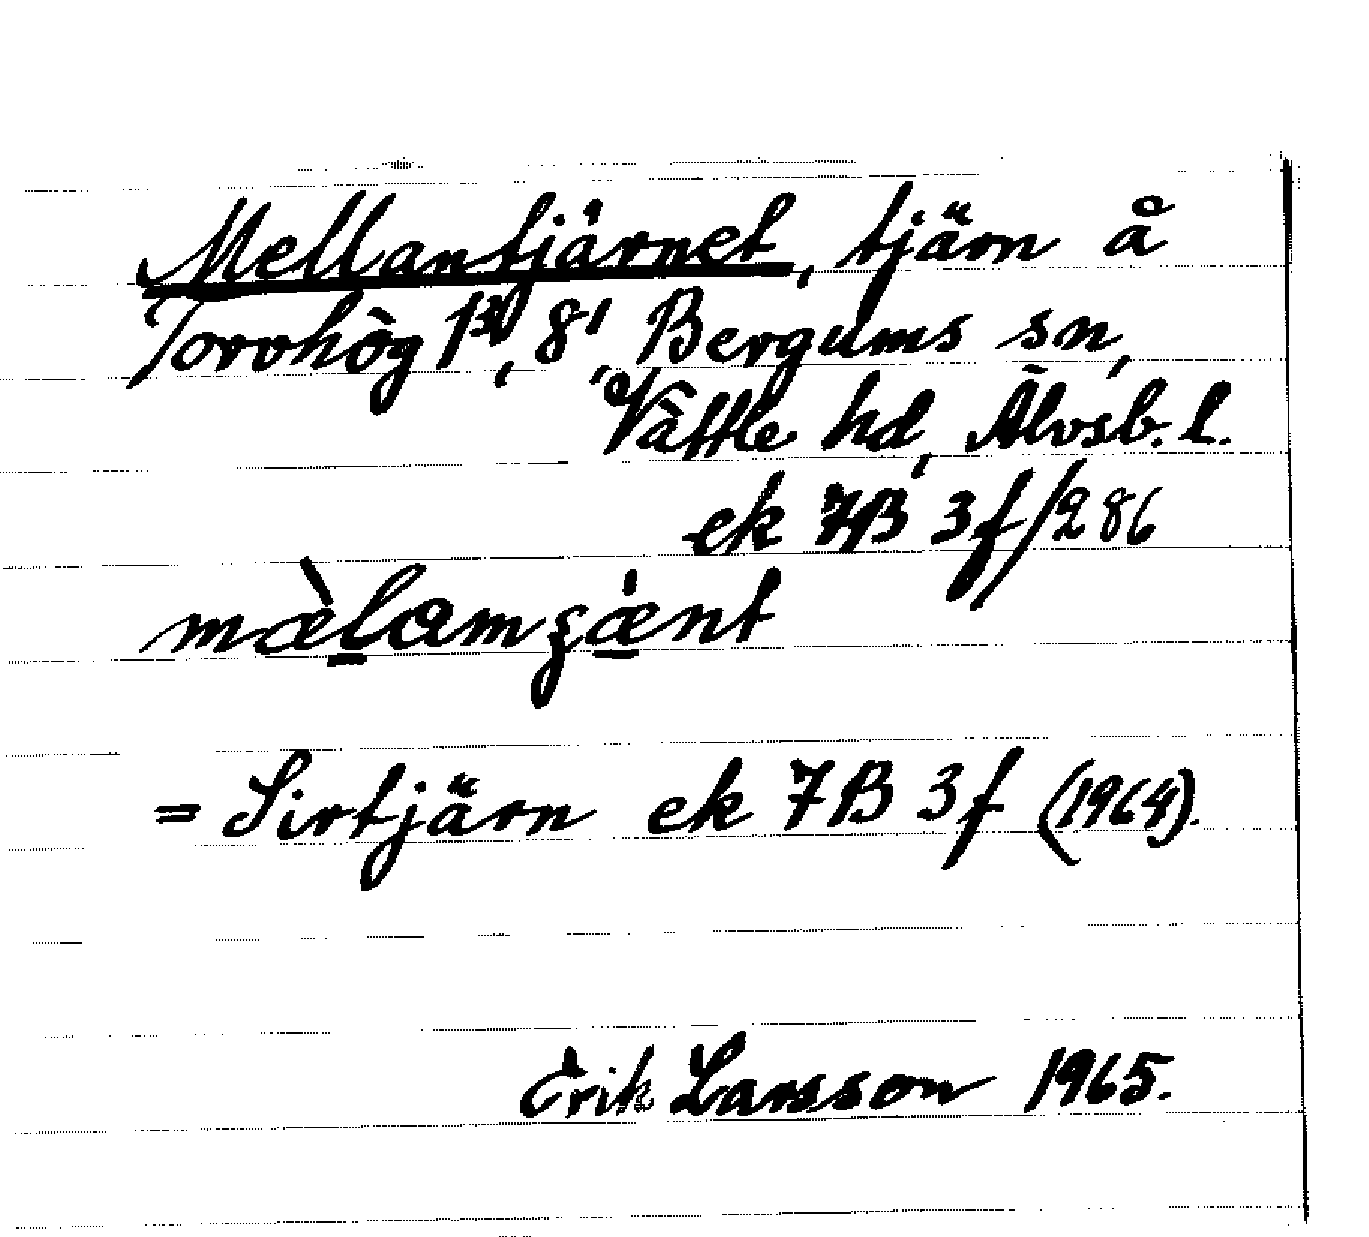 Mellantjärnet, tjärn å
Torvhög 1, 8¹, Bergums sn,
Vättle hd, Älvsb. l.
ek 7B 3f/286
mæ̀lamʒǽnt
= Sirtjärn ek 7B 3f (1964).
Erik Larsson 1965.